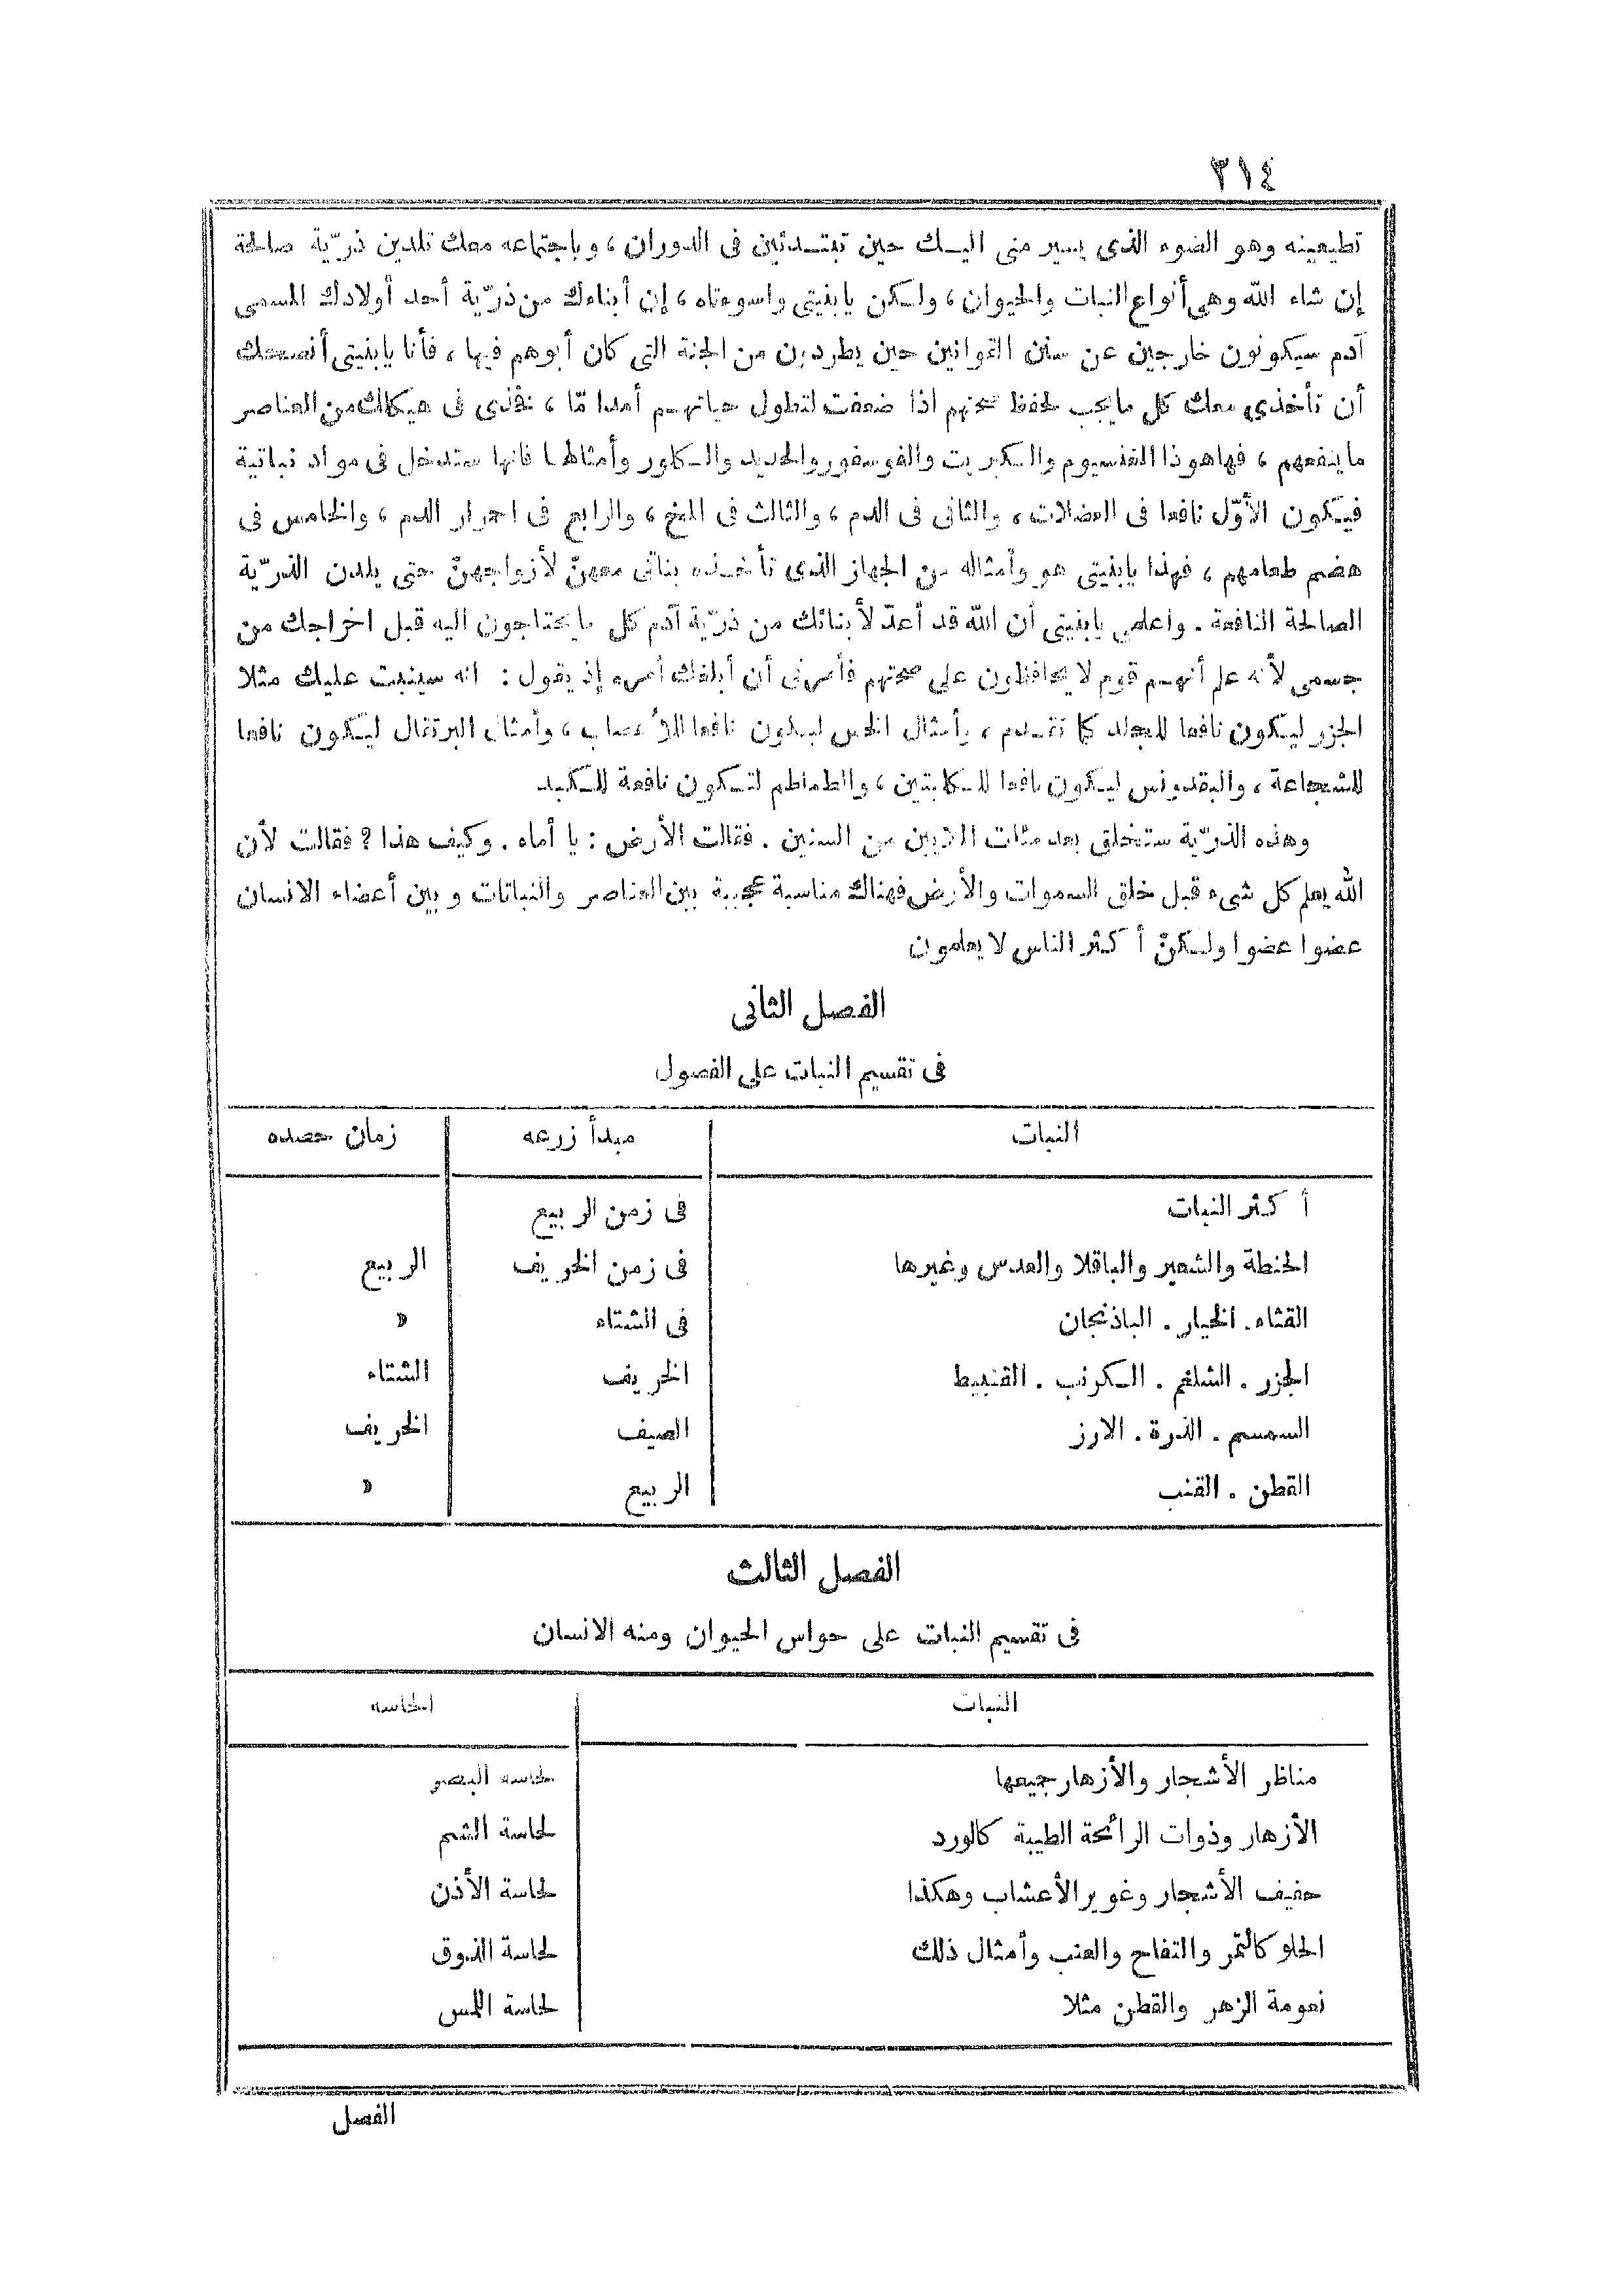 ٣١٤
تطيعينه وهو الضوء الذى يسير منى اليك حين تبتدئين فى الدوران ، وباجتماعه معك تلدين ذرّية صالحة
إن شاء الله وهى أنواع النبات والحيوان ، ولكن يابنيتى واسوءتاه ، إن أبناءك من ذرّية أحد أولادك المسمى
آدم سيكونون خارجين عن سنن القوانين حين يطردون من الجنة التى كان أبوهم فيها ، فأنا يابنيتى أنصحك
أن تأخذى معك كل مايجب لحفظ صحتهم اذا ضعفت لتطول حياتهم أمدا مّا ، فخذى فى هيكلك من العناصر
ماينفعهم ، فهاهوذا المغنسيوم والكبريت والفوسفور والحديد والكلور وأمثالها فانها ستدخل فى مواد نباتية
فيكون الأوّل نافعا فى العضلات ، والثانى فى الدم ، والثالث فى المخ ، والرابع فى احمرار الدم ، والخامس فى
هضم طعامهم ، فهذا يابنيتى هو وأمثاله من الجهاز الذى تأخذه بناتى معهنّ لأزواجهنّ حتى يلدن الذرّية
الصالحة النافعة . واعلمى يابنيتى أن الله قد أعدّ لأبنائك من ذرّية آدم كل مايحتاجون اليه قبل اخراجك من
جسمى لأنه علم أنهم قوم لايحافظون على صحتهم فأمرنى أن أبلغك أمره إذ يقول : انه سينبت عليك مثلا
الجزر ليكون نافعا للجلد كما تقدم ، وأمثال الخس ليكون نافعا للأعصاب ، وأمثال البرتقال ليكون نافعا
للشجاعة ، والبقدونس ليكون نافعا للكليتين ، والطماطم لتكون نافعة للكبد
وهذه الذرّية ستخلق بعد مئات الملايين من السنين . فقالت الأرض : يا أماه . وكيف هذا ؟ فقالت لأن
الله يعلم كل شىء قبل خلق السموات والأرض فهناك مناسبة عجيبة بين العناصر والنباتات وبين أعضاء الانسان
عضوا عضوا ولكنّ أكثر الناس لايعلمون
الفصل الثانى
فى تقسيم النبات على الفصول
النبات مبدأ زرعه زمان حصده
أكثر النبات فى زمن الربيع
الحنطة والشعير والباقلا والعدس وغيرها فى زمن الخريف الربيع
القثاء . الخيار . الباذنجان فى الشتاء »
الجزر . الشلغم . الكرنب . القنبيط الخريف الشتاء
السمسم . الذرة . الارز الصيف الخريف
القطن . القنب الربيع »
الفصل الثالث
فى تقسيم النبات على حواس الحيوان ومنه الانسان
النبات الحاسه
مناظر الأشجار والأزهار جميعها لحاسه البصر
الأزهار وذوات الرائحة الطيبة كالورد لحاسة الشم
حفيف الأشجار وغوير الأعشاب وهكذا لحاسة الأذن
الحلو كالتمر والتفاح والعنب وأمثال ذلك لحاسة الذوق
نعومة الزهر والقطن مثلا لحاسة اللمس
الفصل